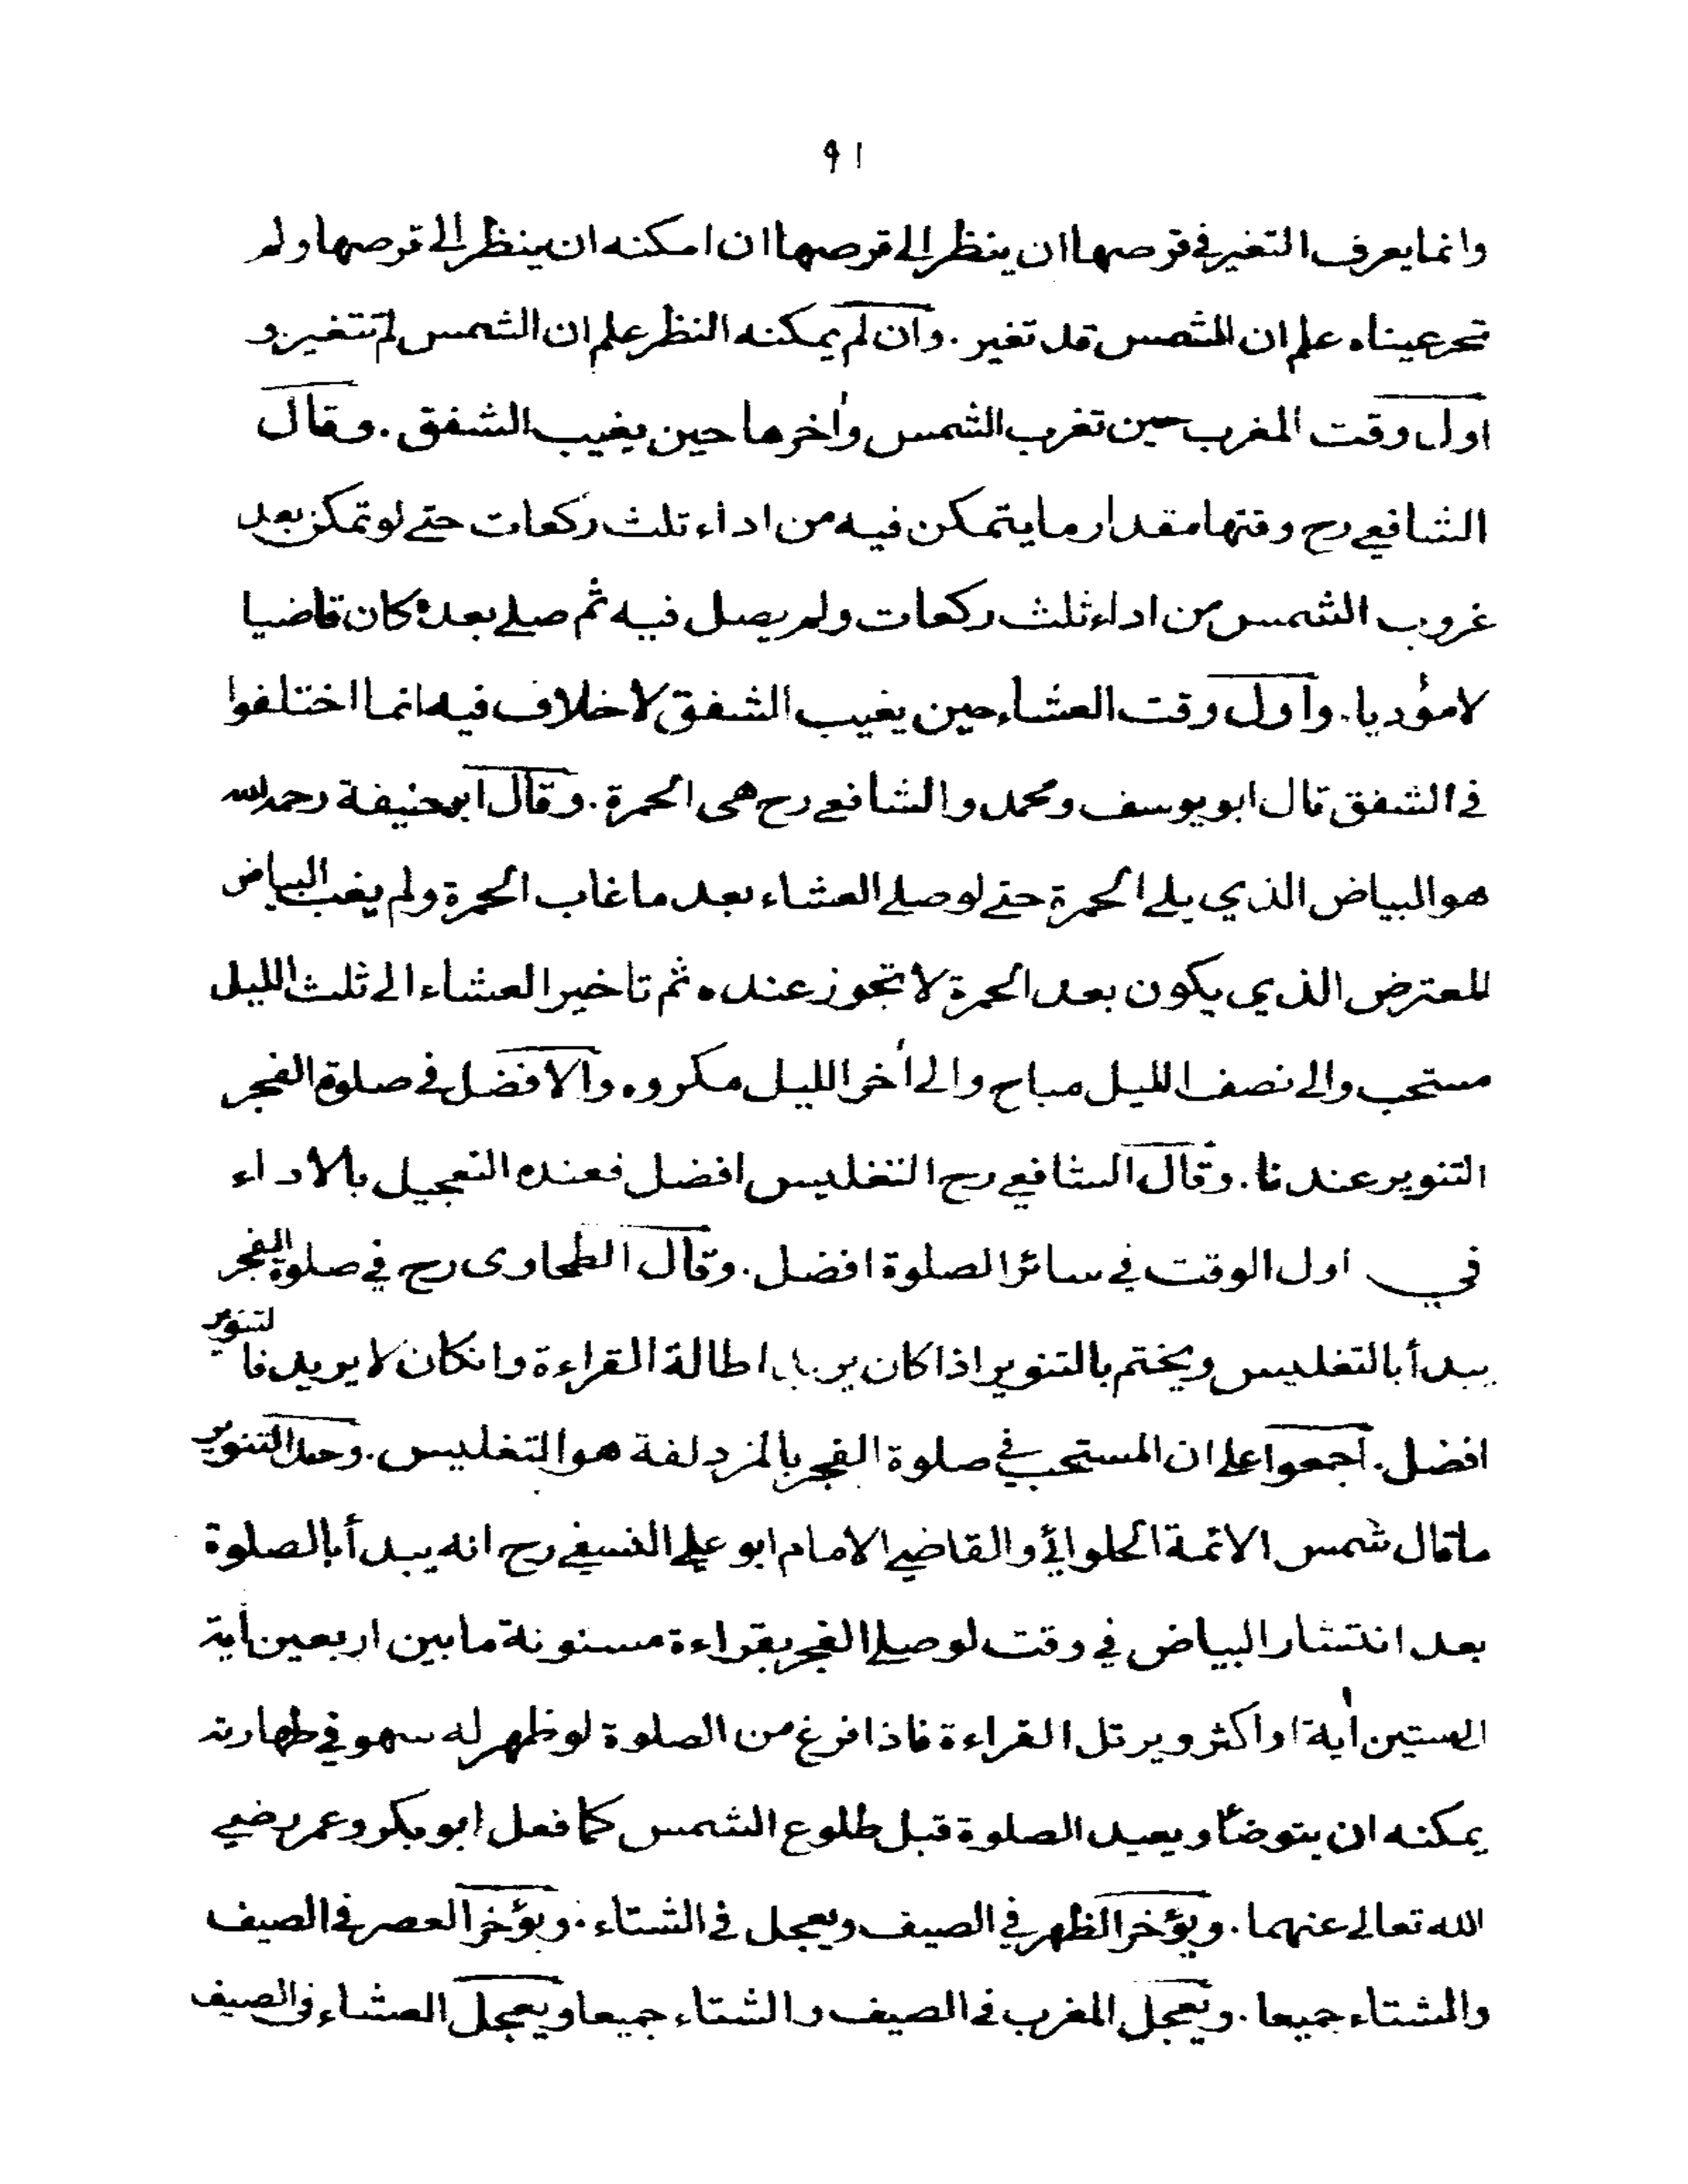 ٩١
وانما يعرف التغير في قرصها ان ينظر الى قرصها ان امكنه ان ينظر الى قرصها ولم
تحر عيناه علم ان الشمس قد تغير. وان لم يمكنه النظر علم ان الشمس لم تتغير و
اول وقت المغرب حين تغرب الشمس وأخرها حين يغيب الشفق. وقال
الشافعي رح وقتها مقدار ما يتمكن فيه من اداء ثلث ركعات حتى لو تمكن بعد
غروب الشمس من اداء ثلث ركعات ولم يصل فيه ثم صلى بعده كان قاضيا
لا مؤديا. واول وقت العشاء حين يغيب الشفق لا خلاف فيه انما اختلفوا
في الشفق قال ابو يوسف ومحمد والشافعي رح هى الحمرة. وقال ابو حنيفة رحمه الله
هو البياض الذي يلى الحمرة حتى لو صلى العشاء بعد ما غاب الحمرة ولم يغب البياض
المعترض الذي يكون بعد الحمرة لا تجوز عنده ثم تاخير العشاء الى ثلث الليل
مستحب والى نصف الليل مباح والى أخر الليل مكروه والافضل في صلوة الفجر
التنوير عندنا. وقال الشافعي رح التغليس افضل فعنده التعجيل بالاداء
في اول الوقت في سائر الصلوة افضل. وقال الطحاوى رح في صلوة الفجر
يبدأ بالتغليس ويختم بالتنوير اذا كان يريد اطالة القراءة وانكان لا يريد فالتنوير
افضل. اجمعوا على ان المستحب في صلوة الفجر بالمزدلفة هو التغليس. وحد التنوير
ما قال شمس الائمة الحلوائي والقاضي الامام ابو علي النسفي رح انه يبدأ بالصلوة
بعد انتشار البياض في وقت لو صلى الفجر بقراءة مسنونة ما بين اربعين أية
الى ستين أية او اكثر ويرتل القراءة فاذا فرغ من الصلوة لو ظهر له سهو في طهارته
يمكنه ان يتوضأ ويعيد الصلوة قبل طلوع الشمس كما فعل ابو بكر وعمر رضي
الله تعالى عنهما. ويؤخر الظهر في الصيف ويعجل في الشتاء. ويؤخر العصر في الصيف
والشتاء جميعا. ويعجل المغرب في الصيف والشتاء جميعا ويعجل العشاء في الصيف